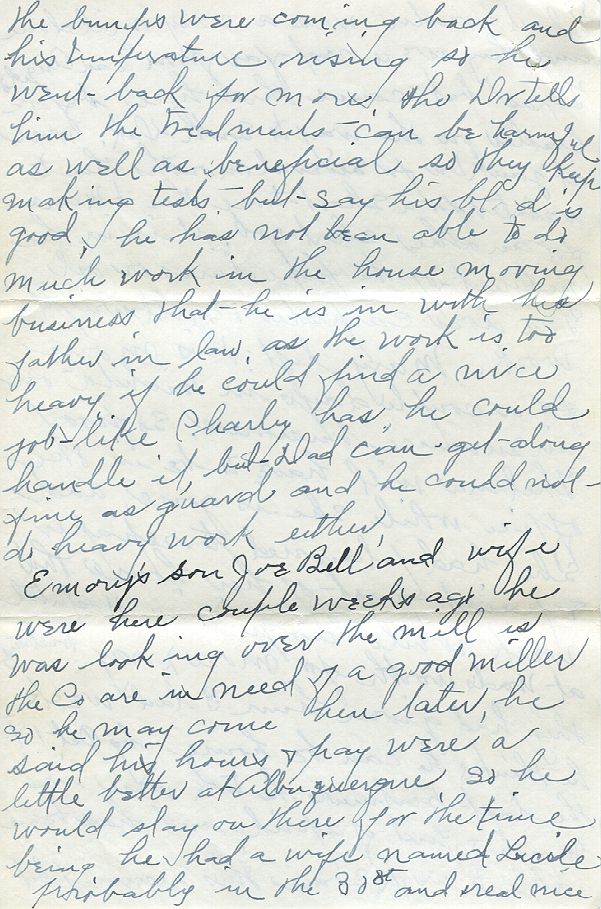 the bumps were coming back and
his temperature rising so he
went back for more, the Dr tells
him the treatments can be harmful
as well as beneficial so they keep
making tests but say his blood is
good, he has not been able to do
much work in the house moving
business that he is in with his
father in law, as the work is too
heavy, if he could find a nice
job like Charley has, he could
handle it, but Dad can get along
fine as guard and he could not
do heavy work either,
Emory's son Joe Bell and wife
were here couple weeks ago he
was looking over the mill is
the Co are in need of a good miller
so he may come here later, he
said his hours & pay were a
little better at Albuquerque, so he
would stay on there for the time
being he had a wife named Lucile
probably in the 30st and real nice